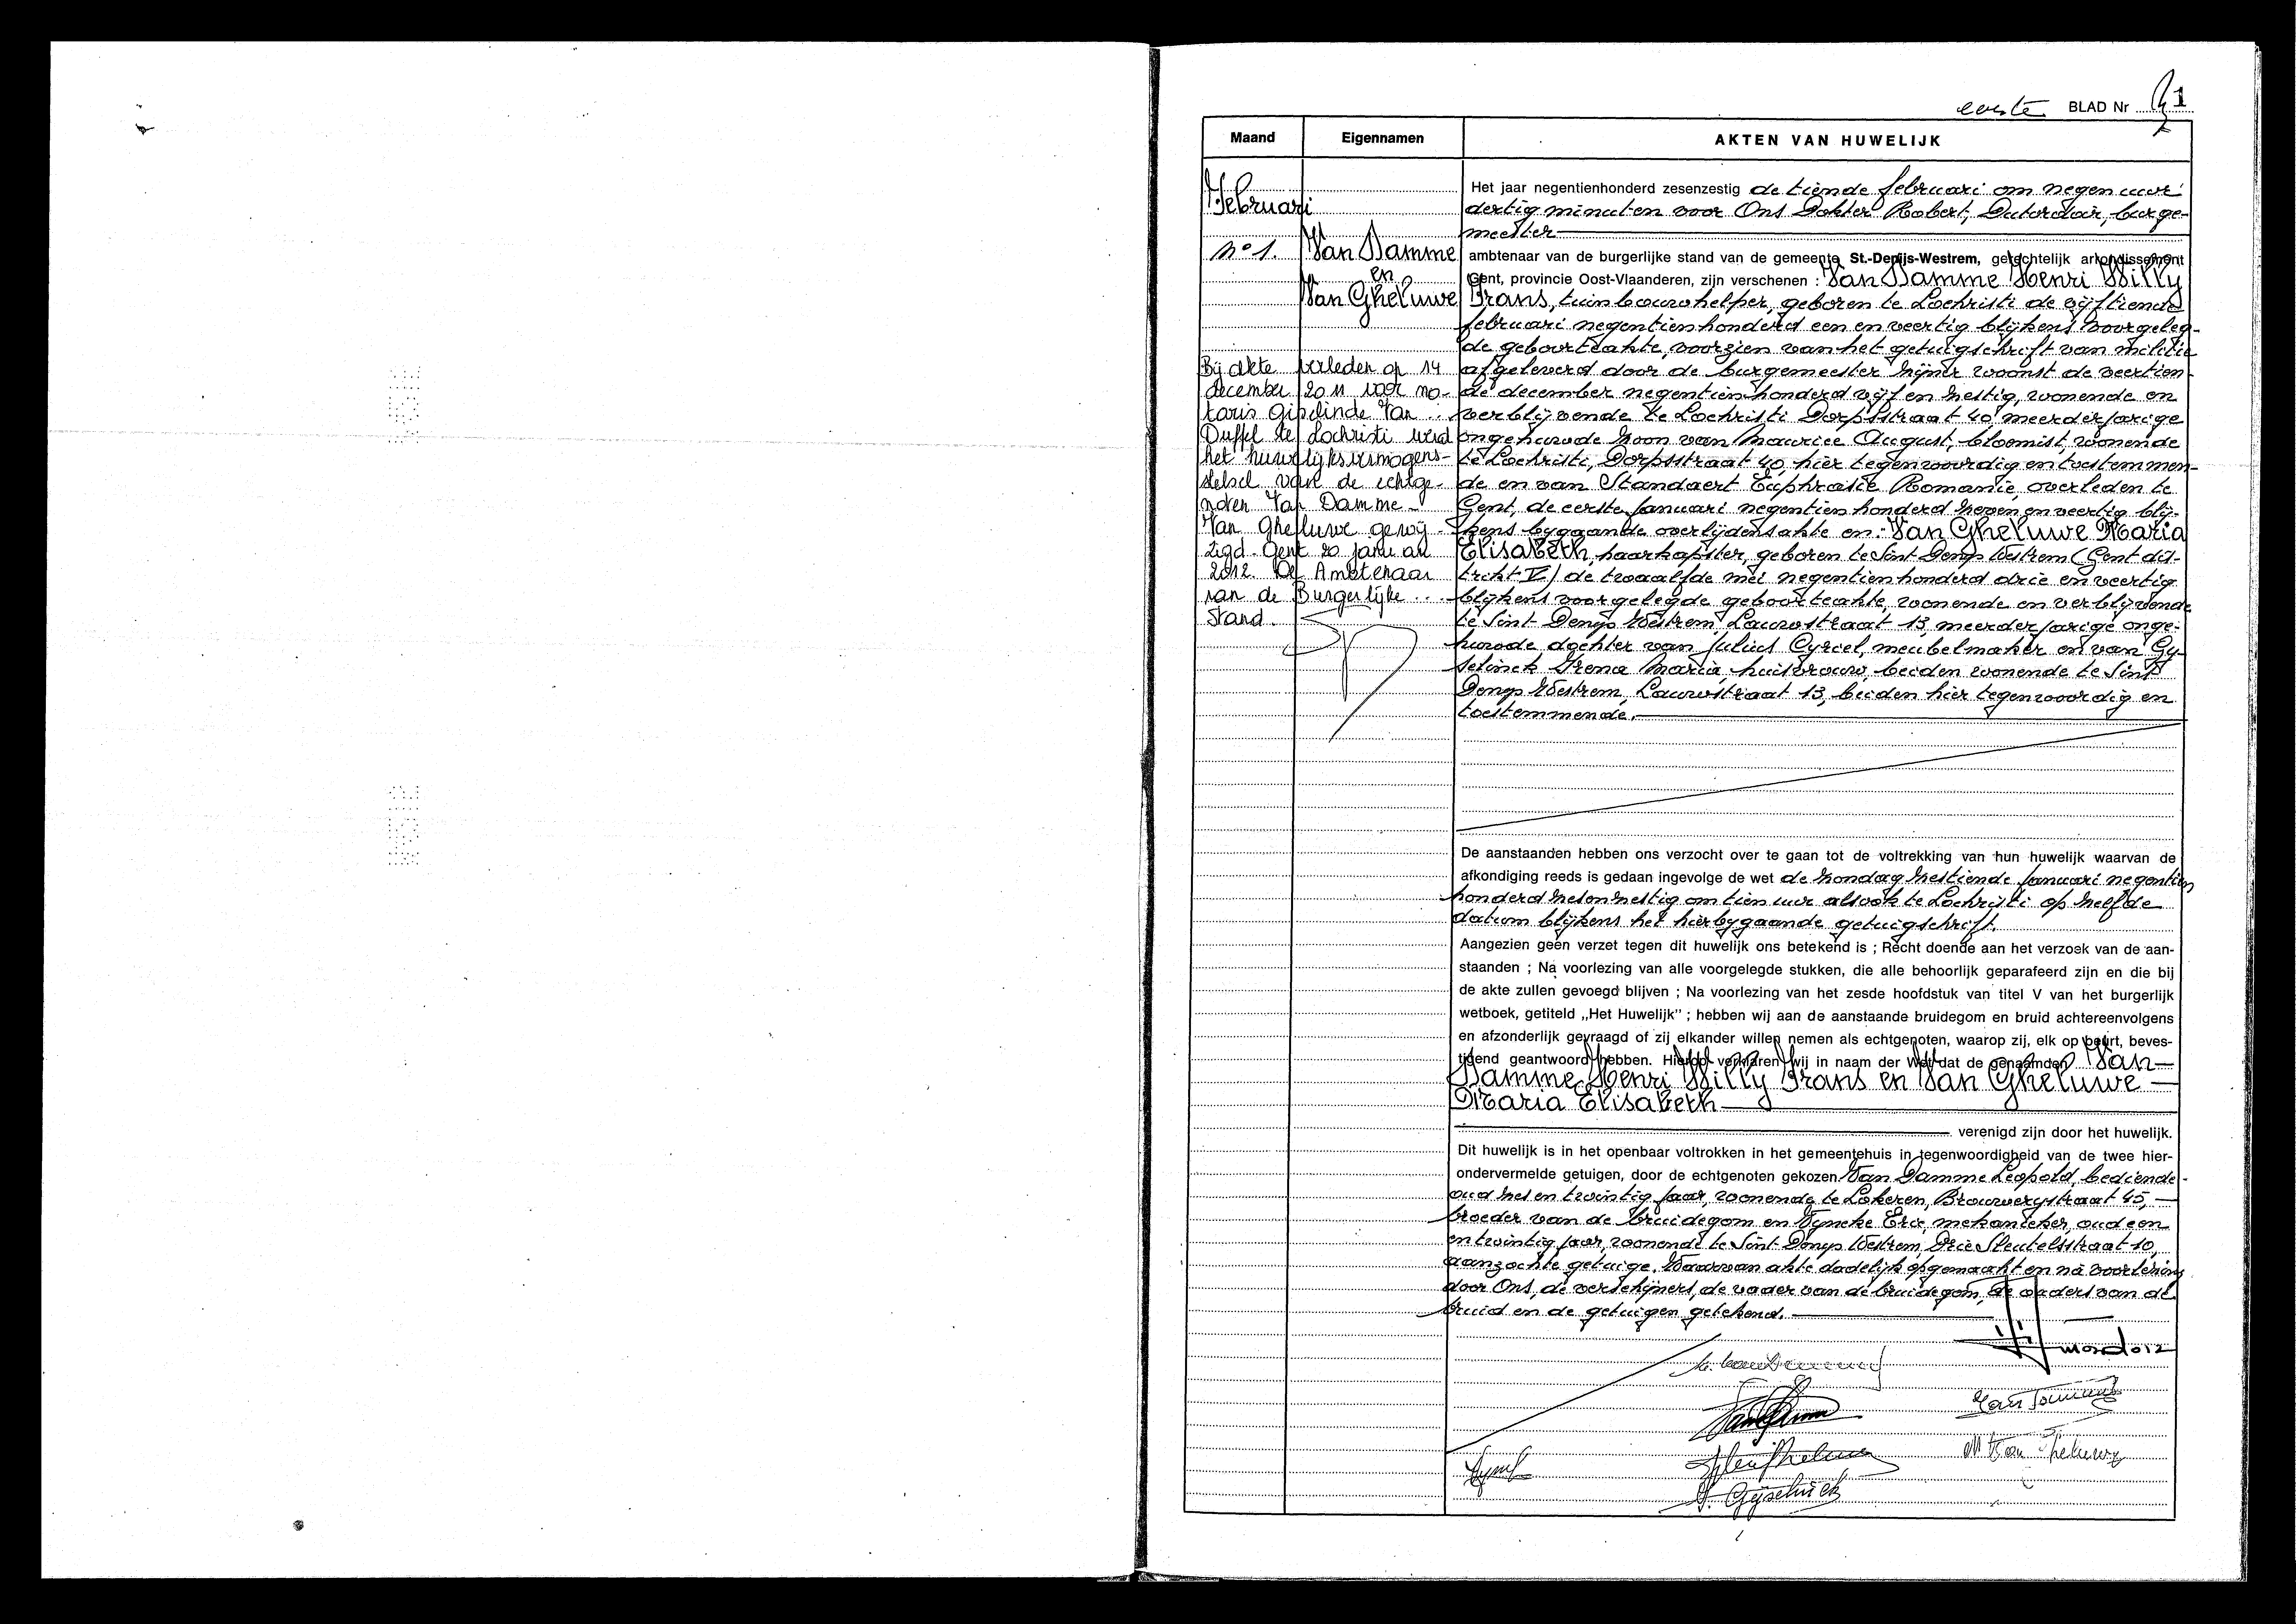 eerste BLAD Nr 1
Maand Eigennamen AKTEN VAN HUWELIJK
Februari
N° 1. Van Damme
en
Van Gheluwe
Bij akte verleden op 14
december 2011 voor no-
taris Gislinde Van
Duffel te Lochristi werd
het huwelijksvermogens-
stelsel van de echtge-
noten Van Damme -
Van Gheluwe gewij-
zigd. Gent 20 januari
2012. De Ambtenaar
van de Burgerlijke
Stand.
Het jaar negentienhonderd zesenzestig de tiende februari om negen uur
dertig minuten voor Ons Dokter Robert, burge-
meester
ambtenaar van de burgerlijke stand van de gemeente St.-Denijs-Westrem, gerechtelijk arrondissement
Gent, provincie Oost-Vlaanderen, zijn verschenen : Van Damme Henri Willy
Frans, tuinbouwhelper, geboren te Lochristi de vijftiende
februari negentienhonderd een en veertig blijkens voorgeleg-
de geboorteakte, voorzien van het getuigschrift van militie
afgeleverd door de burgemeester zijner woonst de veertien-
de december negentienhonderd vijf en zestig, wonende en
verblijvende te Lochristi Dorpsstraat 40, meerderjarige
ongehuwde zoon van Maurice August, bloemist, wonende
te Lochristi, Dorpsstraat 40, hier tegenwoordig en toestemmen-
de en van Standaert Euphrasie Romanie, overleden te
Gent, de eerste januari negentienhonderd zeven en veertig blij-
kens bygaande overlijdensakte en: Van Gheluwe Maria
Elisabeth, haarkapster, geboren te Sint Denys Westrem (Gent dis-
trikt V) de twaalfde mei negentienhonderd drie en veertig
blijkens voorgelegde geboorteakte, wonende en verblijvende
te Sint Denys Westrem, Lauwstraat 13, meerderjarige onge-
huwde dochter van Julius Cyriel, meubelmaker en van Gy-
selinck Irena Maria, huisvrouw, beiden wonende te Sint
Denys Westrem, Lauwstraat 13, beiden hier tegenwoordig en
toestemmende.
De aanstaanden hebben ons verzocht over te gaan tot de voltrekking van hun huwelijk waarvan de
afkondiging reeds is gedaan ingevolge de wet de zondag zestiende januari negentien
honderd zesenzestig om tien uur alsook te Lochristi op zelfde
datum blijkens het hierbygaande getuigschrift.
Aangezien geen verzet tegen dit huwelijk ons betekend is ; Recht doende aan het verzoek van de aan-
staanden ; Na voorlezing van alle voorgelegde stukken, die alle behoorlijk geparafeerd zijn en die bij
de akte zullen gevoegd blijven ; Na voorlezing van het zesde hoofdstuk van titel V van het burgerlijk
wetboek, getiteld „Het Huwelijk" ; hebben wij aan de aanstaande bruidegom en bruid achtereenvolgens
en afzonderlijk gevraagd of zij elkander willen nemen als echtgenoten, waarop zij, elk op beurt, beves-
tigend geantwoord hebben. Hierop verklaren wij in naam der Wet dat de genaamden Van
Damme Henri Willy Frans en Van Gheluwe
Maria Elisabeth
verenigd zijn door het huwelijk.
Dit huwelijk is in het openbaar voltrokken in het gemeentehuis in tegenwoordigheid van de twee hier-
ondervermelde getuigen, door de echtgenoten gekozen Van Damme Leopold, bediende
oud zes en twintig jaar, wonende te Lokeren, Brouwerystraat 45,
broeder van de bruidegom en Vyncke Eric, mekanieker, oud een
en twintig jaar, wonende te Sint Denys Westrem, Drie Sleutelsstraat 10,
aanzochte getuige. Waarvan akte dadelijk opgemaakt en na voorlezing
door Ons, de verschijners, de vader van de bruidegom, de ouders van de
bruid en de getuigen getekend.
M Van Gheluwe
I. Gyselinck